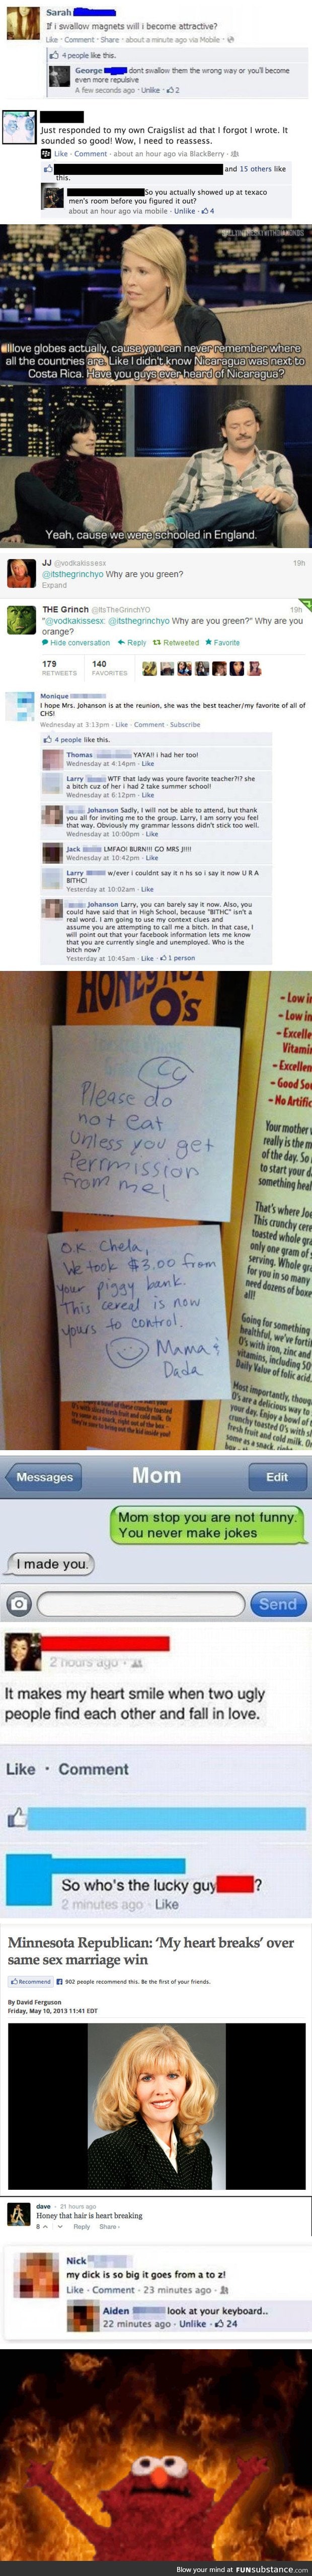 Sarah
If i swallow magnets will i become attractive?
Like · Comment · Share · about a minute ago via Mobile ·
4 people like this.
George dont swallow them the wrong way or you'll become
even more repulsive
A few seconds ago · Unlike · 2
Just responded to my own Craigslist ad that I forgot I wrote. It
sounded so good! Wow, I need to reassess.
Like · Comment · about an hour ago via BlackBerry ·
and 15 others like
this.
So you actually showed up at texaco
men's room before you figured it out?
about an hour ago via mobile · Unlike · 4
I love globes actually, cause you can never remember where
all the countries are. Like I didn't know Nicaragua was next to
Costa Rica. Have you guys ever heard of Nicaragua?
Yeah, cause we were schooled in England.
JJ @vodkakissesx 19h
@itsthegrinchyo Why are you green?
Expand
THE Grinch @ItsTheGrinchYO 19h
"@vodkakissesx: @itsthegrinchyo Why are you green?" Why are you
orange?
Hide conversation Reply Retweeted Favorite
179 140
RETWEETS FAVORITES
Monique
I hope Mrs. Johanson is at the reunion, she was the best teacher/my favorite of all of
CHS!
Wednesday at 3:13pm · Like · Comment · Subscribe
4 people like this.
Thomas YAYA!! i had her too!
Wednesday at 4:14pm · Like
Larry WTF that lady was youre favorite teacher?!? she
a bitch cuz of her i had 2 take summer school!
Wednesday at 6:12pm · Like
Johanson Sadly, I will not be able to attend, but thank
you all for inviting me to the group. Larry, I am sorry you feel
that way. Obviously my grammar lessons didn't stick too well.
Wednesday at 10:00pm · Like
Jack LMFAO! BURN!!! GO MRS J!!!!
Wednesday at 10:42pm · Like
Larry w/ever i couldnt say it n hs so i say it now U R A
BITHC!
Yesterday at 10:02am · Like
Johanson Larry, you can barely say it now. Also, you
could have said that in High School, because "BITHC" isn't a
real word. I am going to use my context clues and
assume you are attempting to call me a bitch. In that case, I
will point out that your facebook information lets me know
that you are currently single and unemployed. Who is the
bitch now?
Yesterday at 10:45am · Like · 1 person
O's
CC
Please do
not eat
unless you get
Permission
from me!
O.K Chela,
We took $3.00 from
your piggy bank.
This cereal is now
yours to control.
Mama &
Dada
- Excelle
Vitamin
- Excellen
- No Artific
Your mother
really is the m
of the day. So
to start your d
something heal
That's where Joe
This crunchy cere
toasted whole gra
only one gram of s
serving. Whole gra
for you in so many
need dozens of boxe
all!
Going for something
healthful, we've fortifi
O's with iron, zinc an
vitamins, including 50
Daily Value of folic acid.
Most importantly, thoug
O's are a delicious way of
your day. Enjoy a bowl of
crunchy toasted O's with s
fresh fruit and cold milk. O
some as a snack, right
Messages
Mom
Edit
Mom stop you are not funny.
You never make jokes
I made you.
Send
2 hours ago ·
It makes my heart smile when two ugly
people find each other and fall in love.
Like · Comment
So who's the lucky guy ?
2 minutes ago · Like
Minnesota Republican: 'My heart breaks' over
same sex marriage win
Recommend 902 people recommend this. Be the first of your friends.
By David Ferguson
Friday, May 10, 2013 11:41 EDT
dave · 21 hours ago
Honey that hair is heart breaking
8 Reply Share ›
Nick
my dick is so big it goes from a to z!
Like · Comment · 23 minutes ago ·
Aiden look at your keyboard..
22 minutes ago · Unlike · 24
Blow your mind at FUNsubstance.com